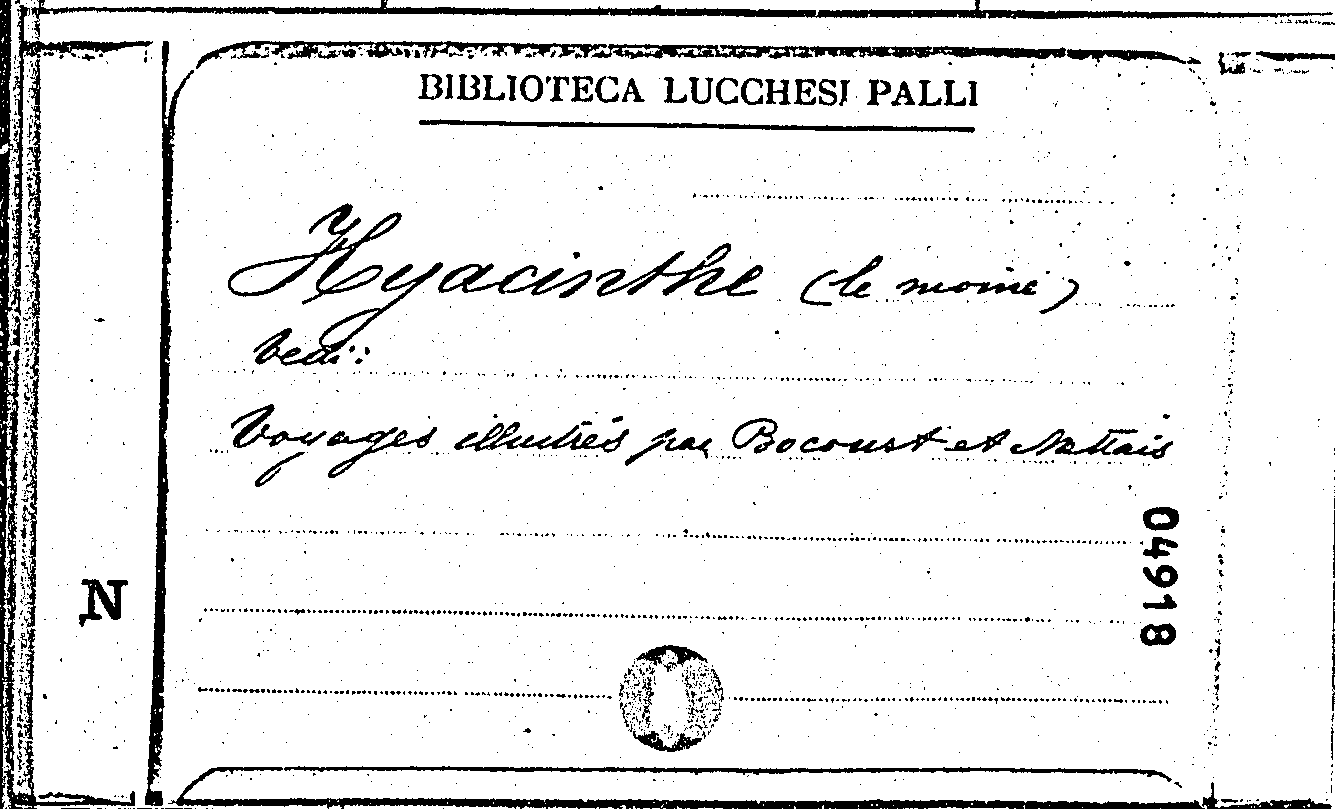 BIBLIOTECA LUCCHESI PALLI
Hyacinthe (le moine)
Vedi:
Voyages illustrés par Bocourt et Nettais
04918
N